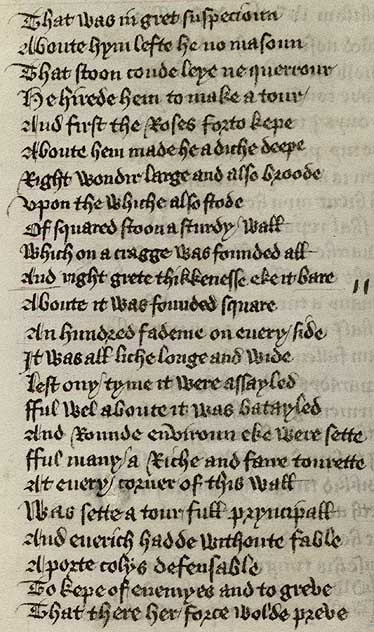 That was in gret suspecioun
Aboute hym lefte he no masoun
That stoon coude leye ne querrour
He hirede hem to make a tour
And first the Roses forto kepe
Aboute hem made he a diche deepe
Right wondir large and also broode
Vpon the whiche also stode
Of squared stoon a sturdy wall
Which on a cragge was founded all
And right grete thikkenesse eke it bare
Aboute it was founded square
An hundred fademe on euery side
It was all liche longe and wide
Lest ony tyme it were assayled
Fful wel aboute it was batayled
And Rounde enviroun eke were sette
Fful many a Riche and faire tourette
At euery corner of this wall
Was sette a tour full pryncipall
And euerich hadde withoute fable
A porte colys defensable
To kepe of enemyes and to greve
That there her force wolde preve